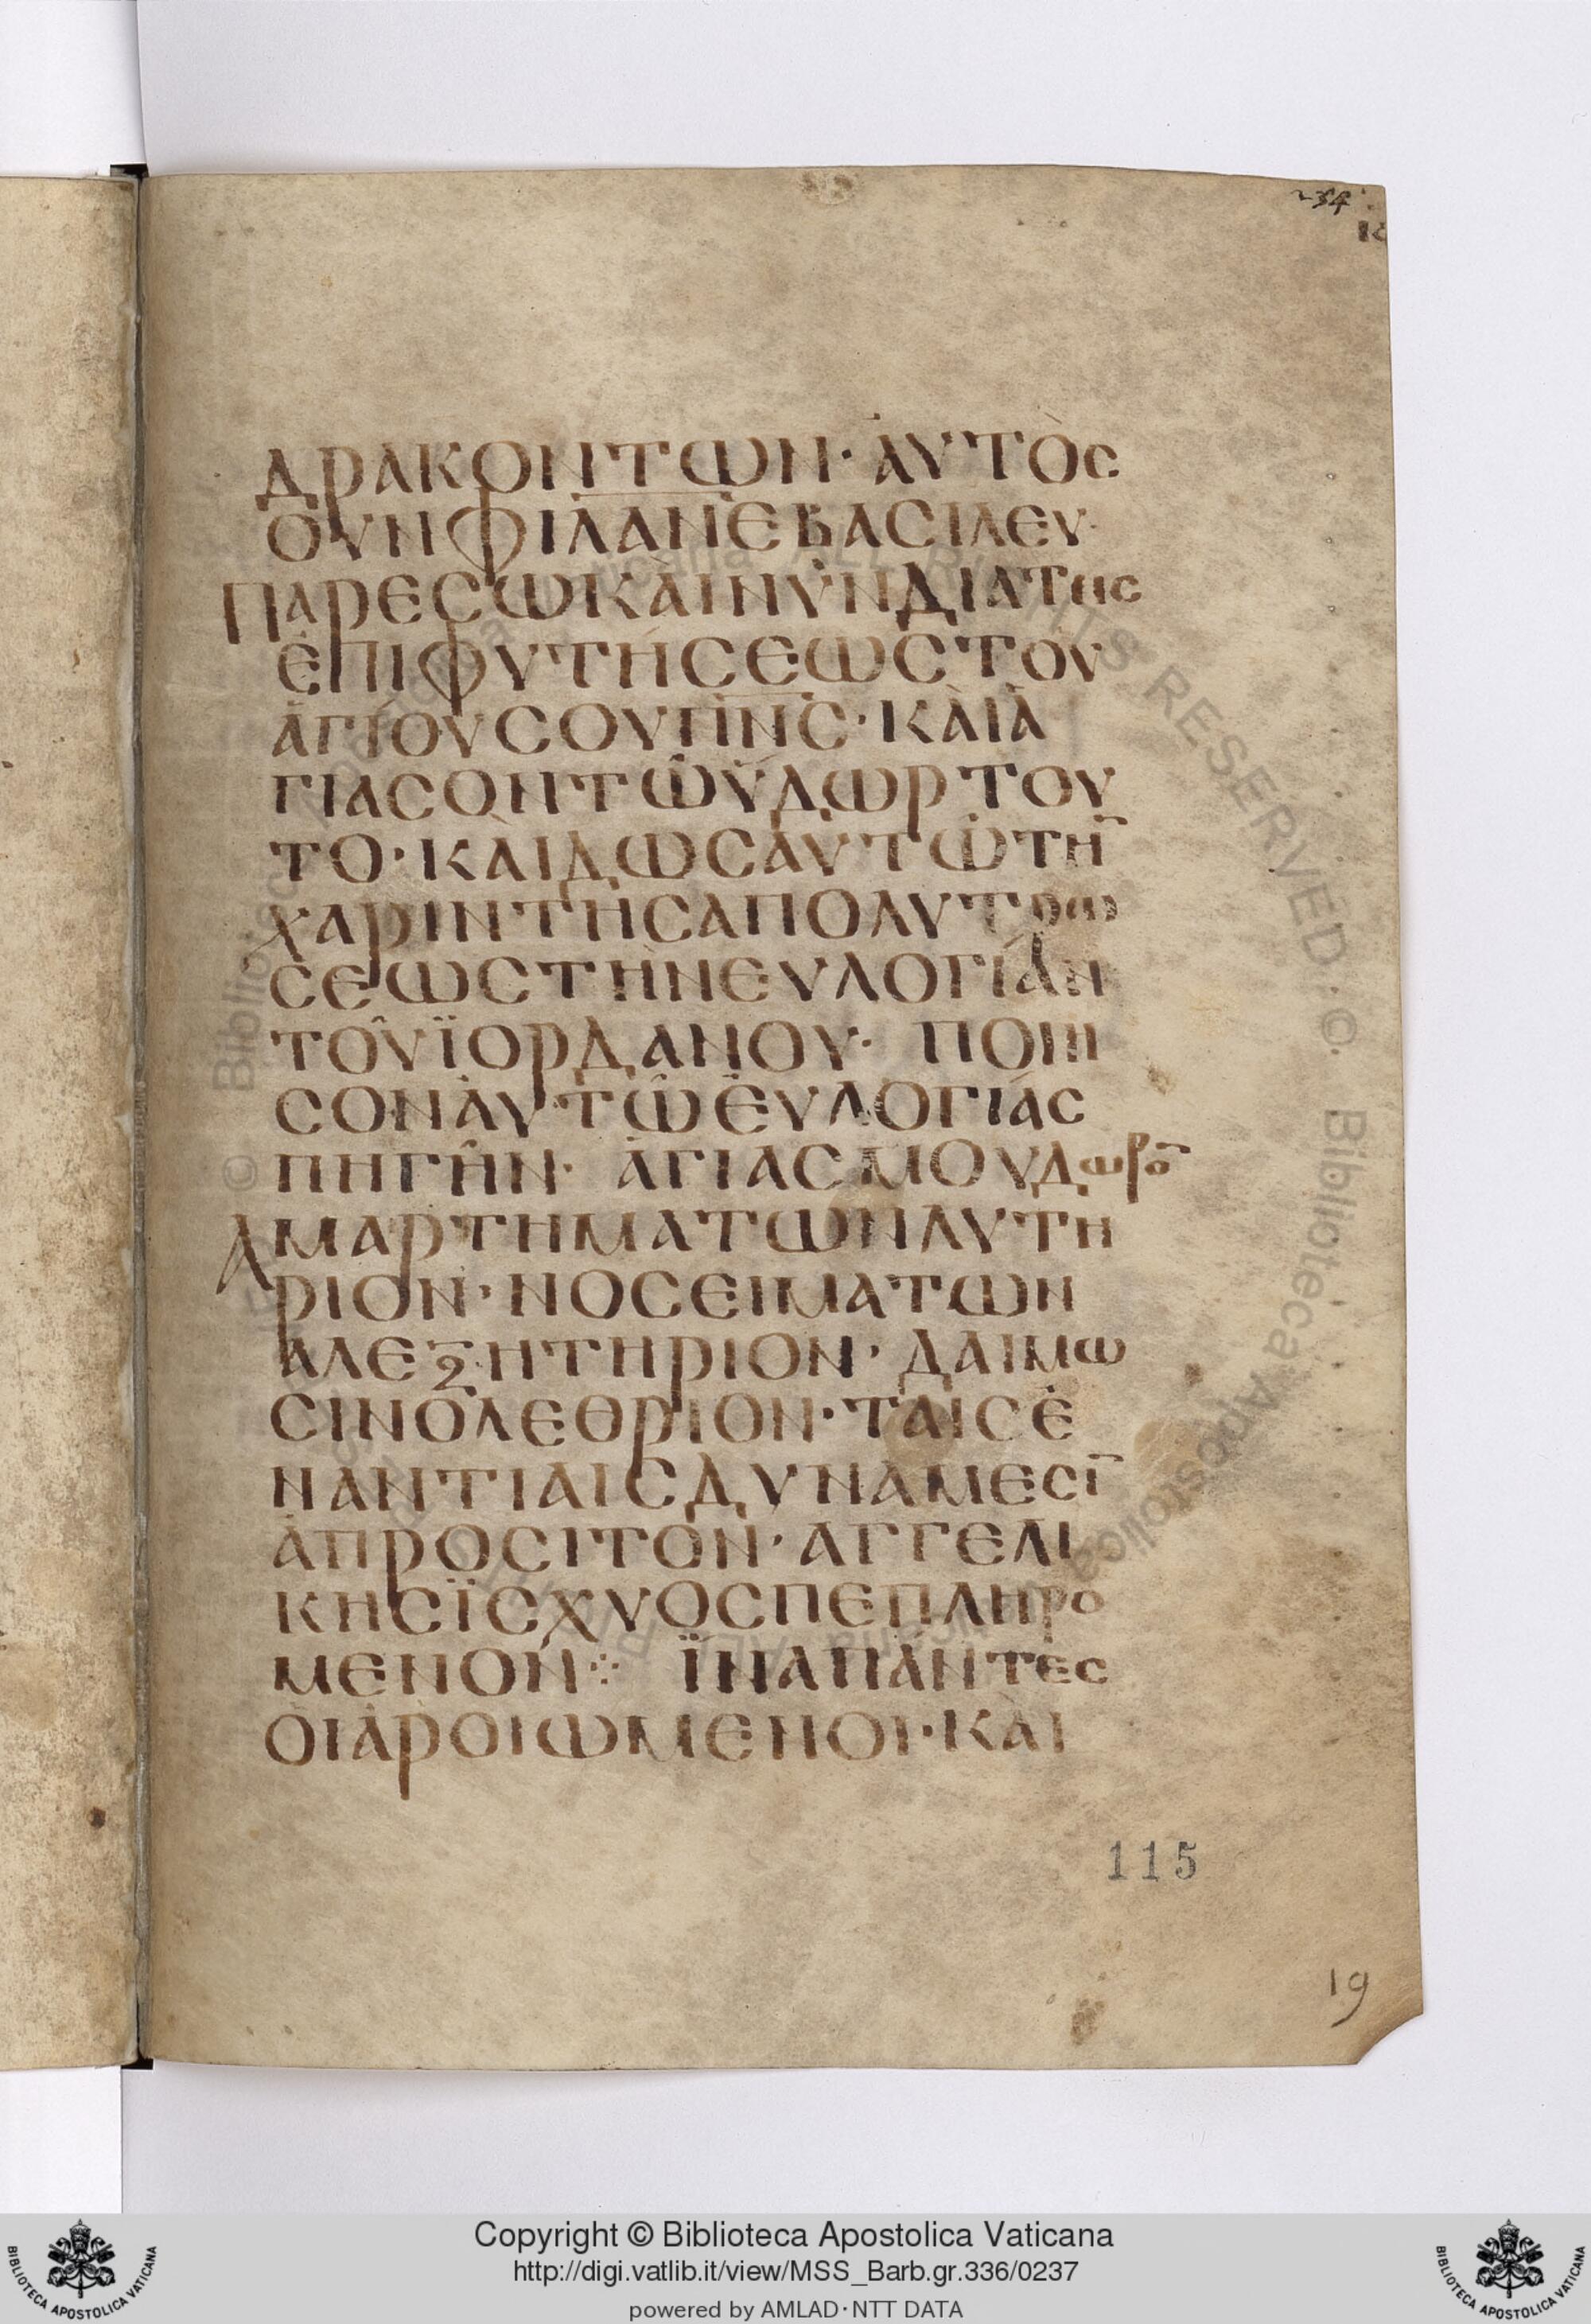 234
ΔΡΑΚΟΝΤΩΝ· ἈΥΤῸC
ΟΥΝ ΦΙΛΑΝΕ ΒΑCΙΛΕΥ·
ΠΑΡΕCΩ ΚΑῚ ΝΥ͂Ν ΔΙΑ ΤΗC
ἘΠΙΦΥΤΉCΕΩC ΤΟΥ
ἉΓΊΟΥ CΟΥ Π̅Ν̅C̅· ΚΑῚ Ἁ
ΓΙΑCΟΝ ΤΩ͂ ὝΔΩΡ ΤΟΥ
ΤΟ· ΚΑῚ ΔΩC ἈΥΤΩ͂ ΤΗ̅
ΧΑΡΙΝ ΤΗC ΑΠΟΛΥΤΡΩ
CΕΩC ΤῊΝ ΕΥΛΟΓΊΑΝ
ΤΟΥ͂ ΪΟΡΔΑΝΟΥ· ΠΟΙΗ
CΟΝ ἈΥΤΩ͂ ἘΥΛΟΓΊΑC
ΠΗΓῊΝ· ἉΓΙΑCΜΟΥ ΔΩΡΟ̅
ΑΜΑΡΤΗΜΑΤΩΝ ΛΥΤΗ
ΡΙΟΝ· ΝΟCΕΙΜΑΤΩΝ
ἈΛΕΞΗΤΗΡΙΟΝ· ΔΑΙΜΩ
CΙΝ ΟΛΕΘΡΙΟΝ· ΤΑΙC Ἐ
ΝΑΝΤΙΑΙC ΔΥΝΑΜΕCΙ̅
ἈΠΡΟCΙΤΟΝ· ΑΓΓΕΛΙ
ΚΗC ΪCΧΥΟC ΠΕΠΛΗΡΟ
ΜΕΝΟΝ⁘ ΪΝΑ ΠΑΝΤΕC
ΟΙ ἈΡΟΙΩΜΕΝΟΙ· ΚΑῚ
115
19
Copyright © Biblioteca Apostolica Vaticana
http://digi.vatlib.it/view/MSS_Barb.gr.336/0237
powered by AMLAD·NTT DATA
BIBLIOTECA APOSTOLICA VATICANA
BIBLIOTECA APOSTOLICA VATICANA